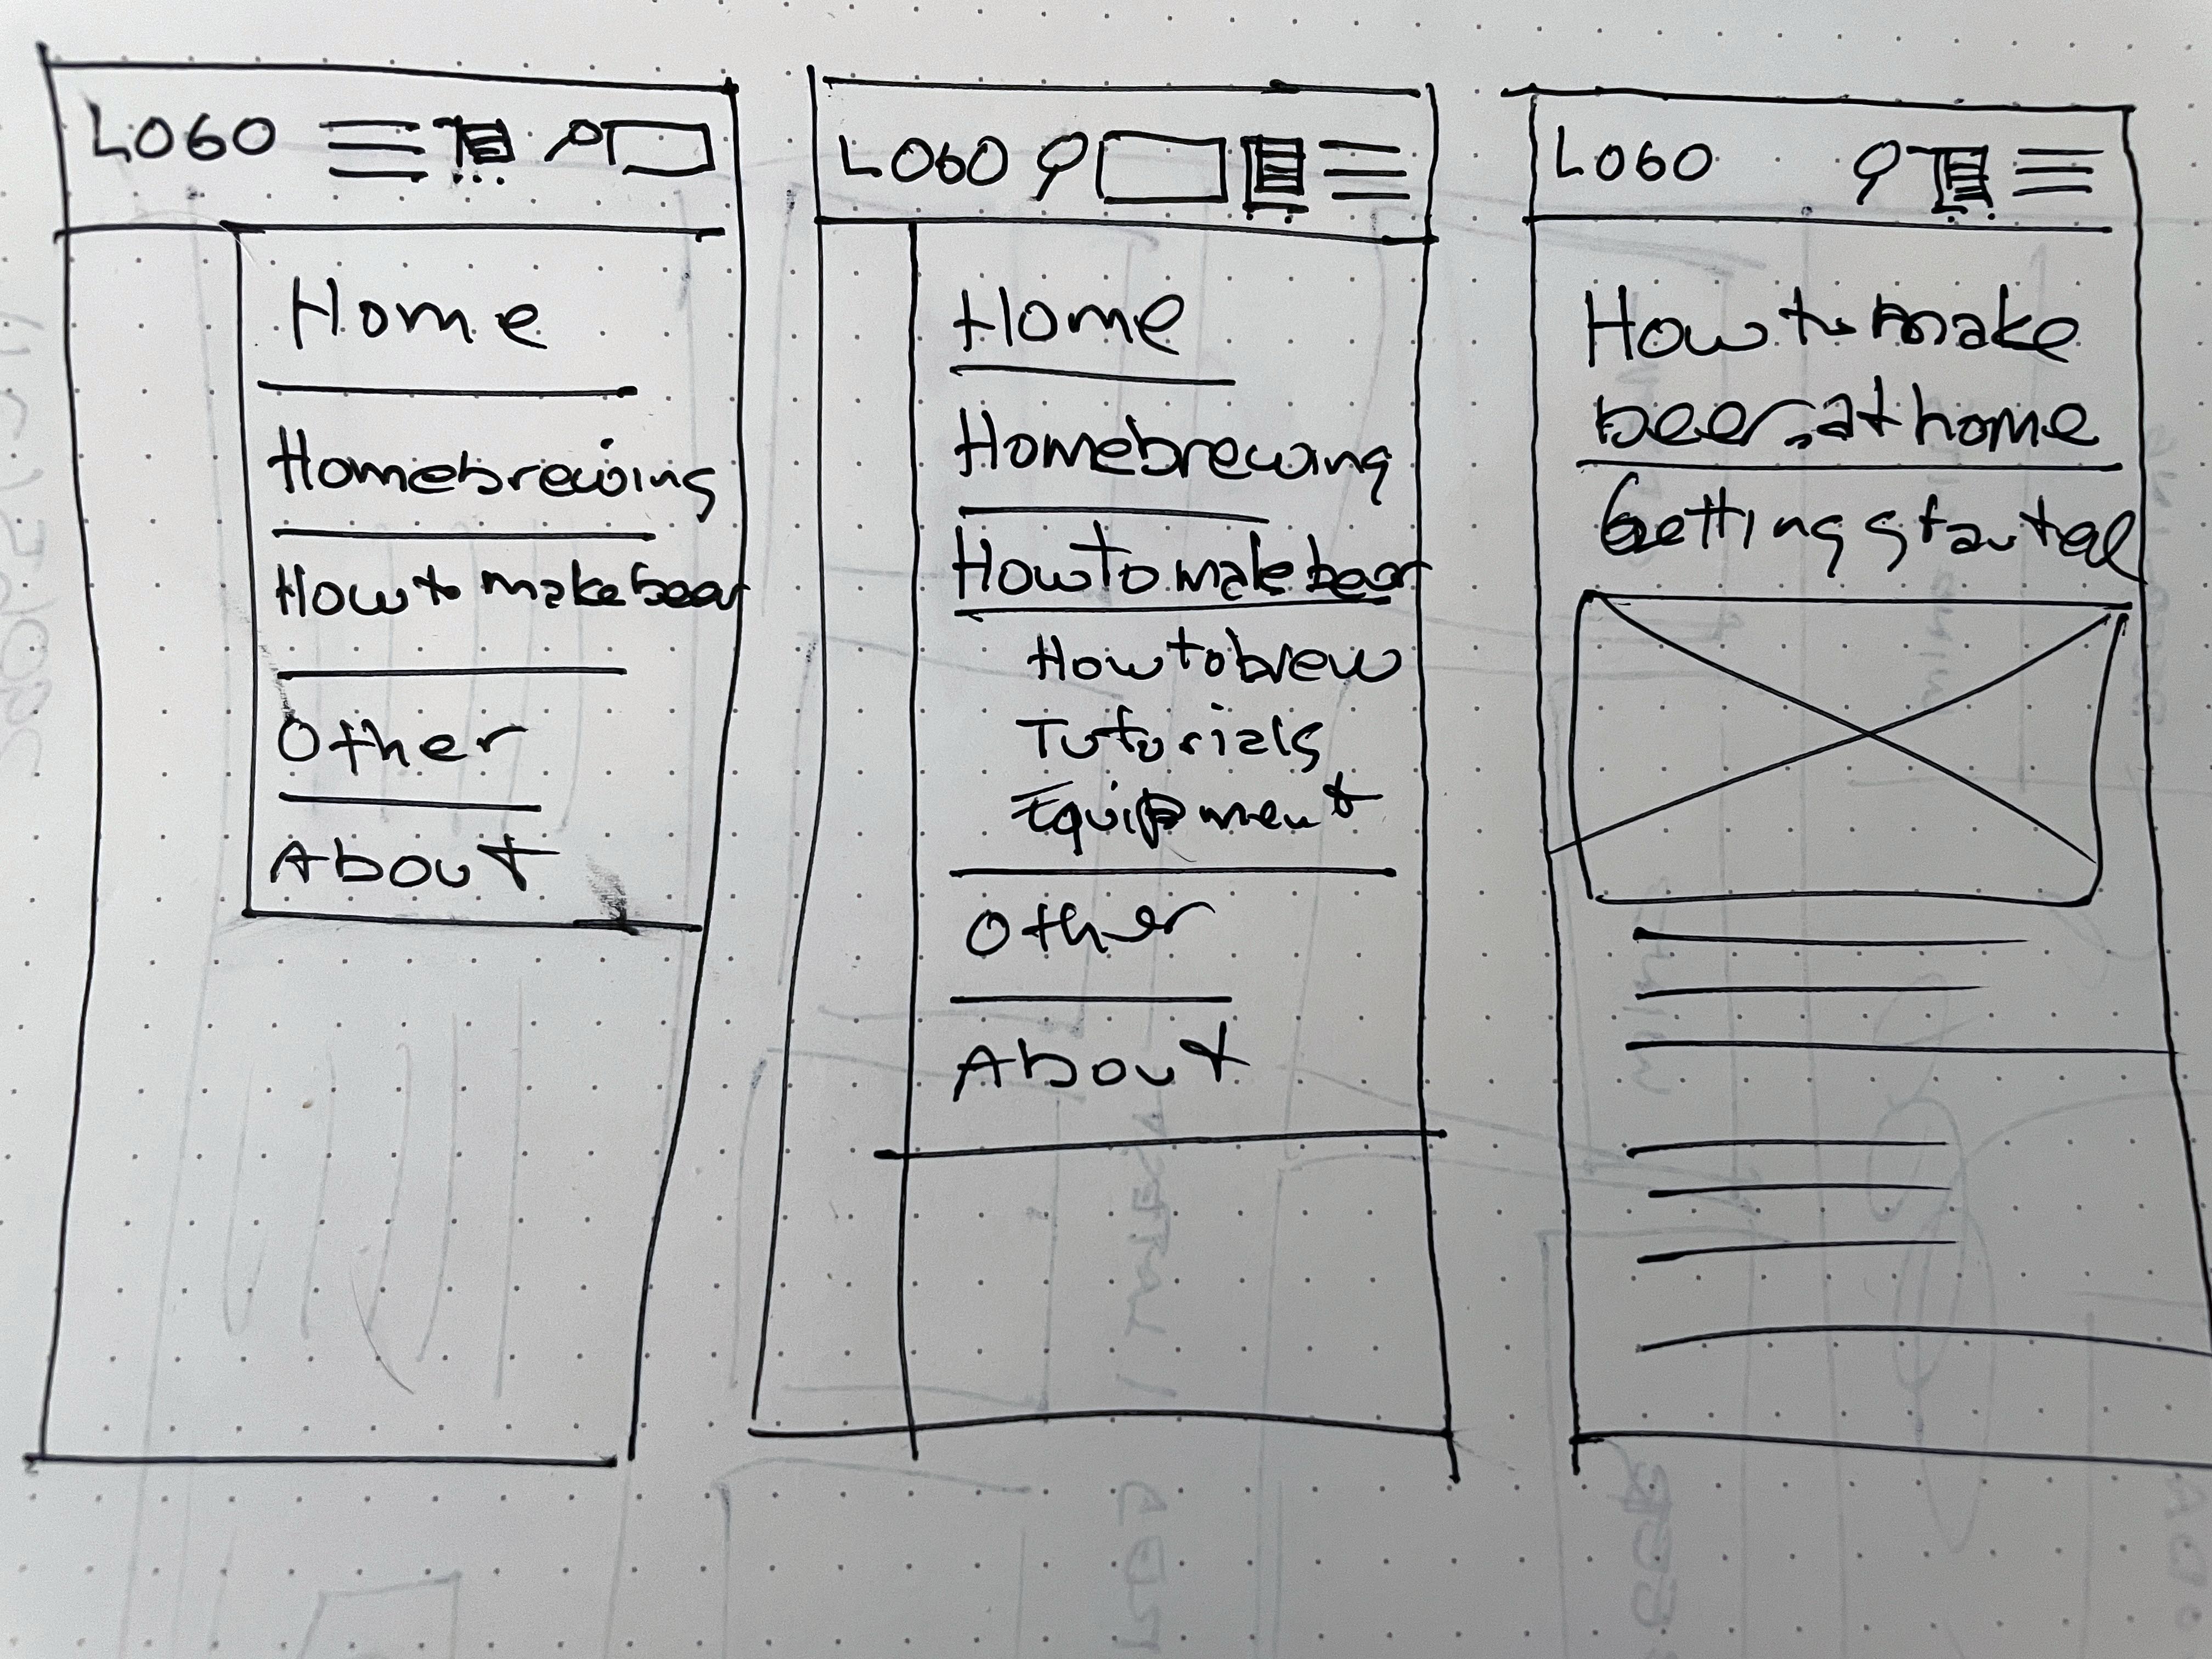 LOGO
Home
Homebrewing
How to make beer
Other
About
LOGO
Home
Homebrewing
How to make beer
How to brew
Tutorials
Equipment
Other
About
LOGO
How to make
beer at home
Getting started